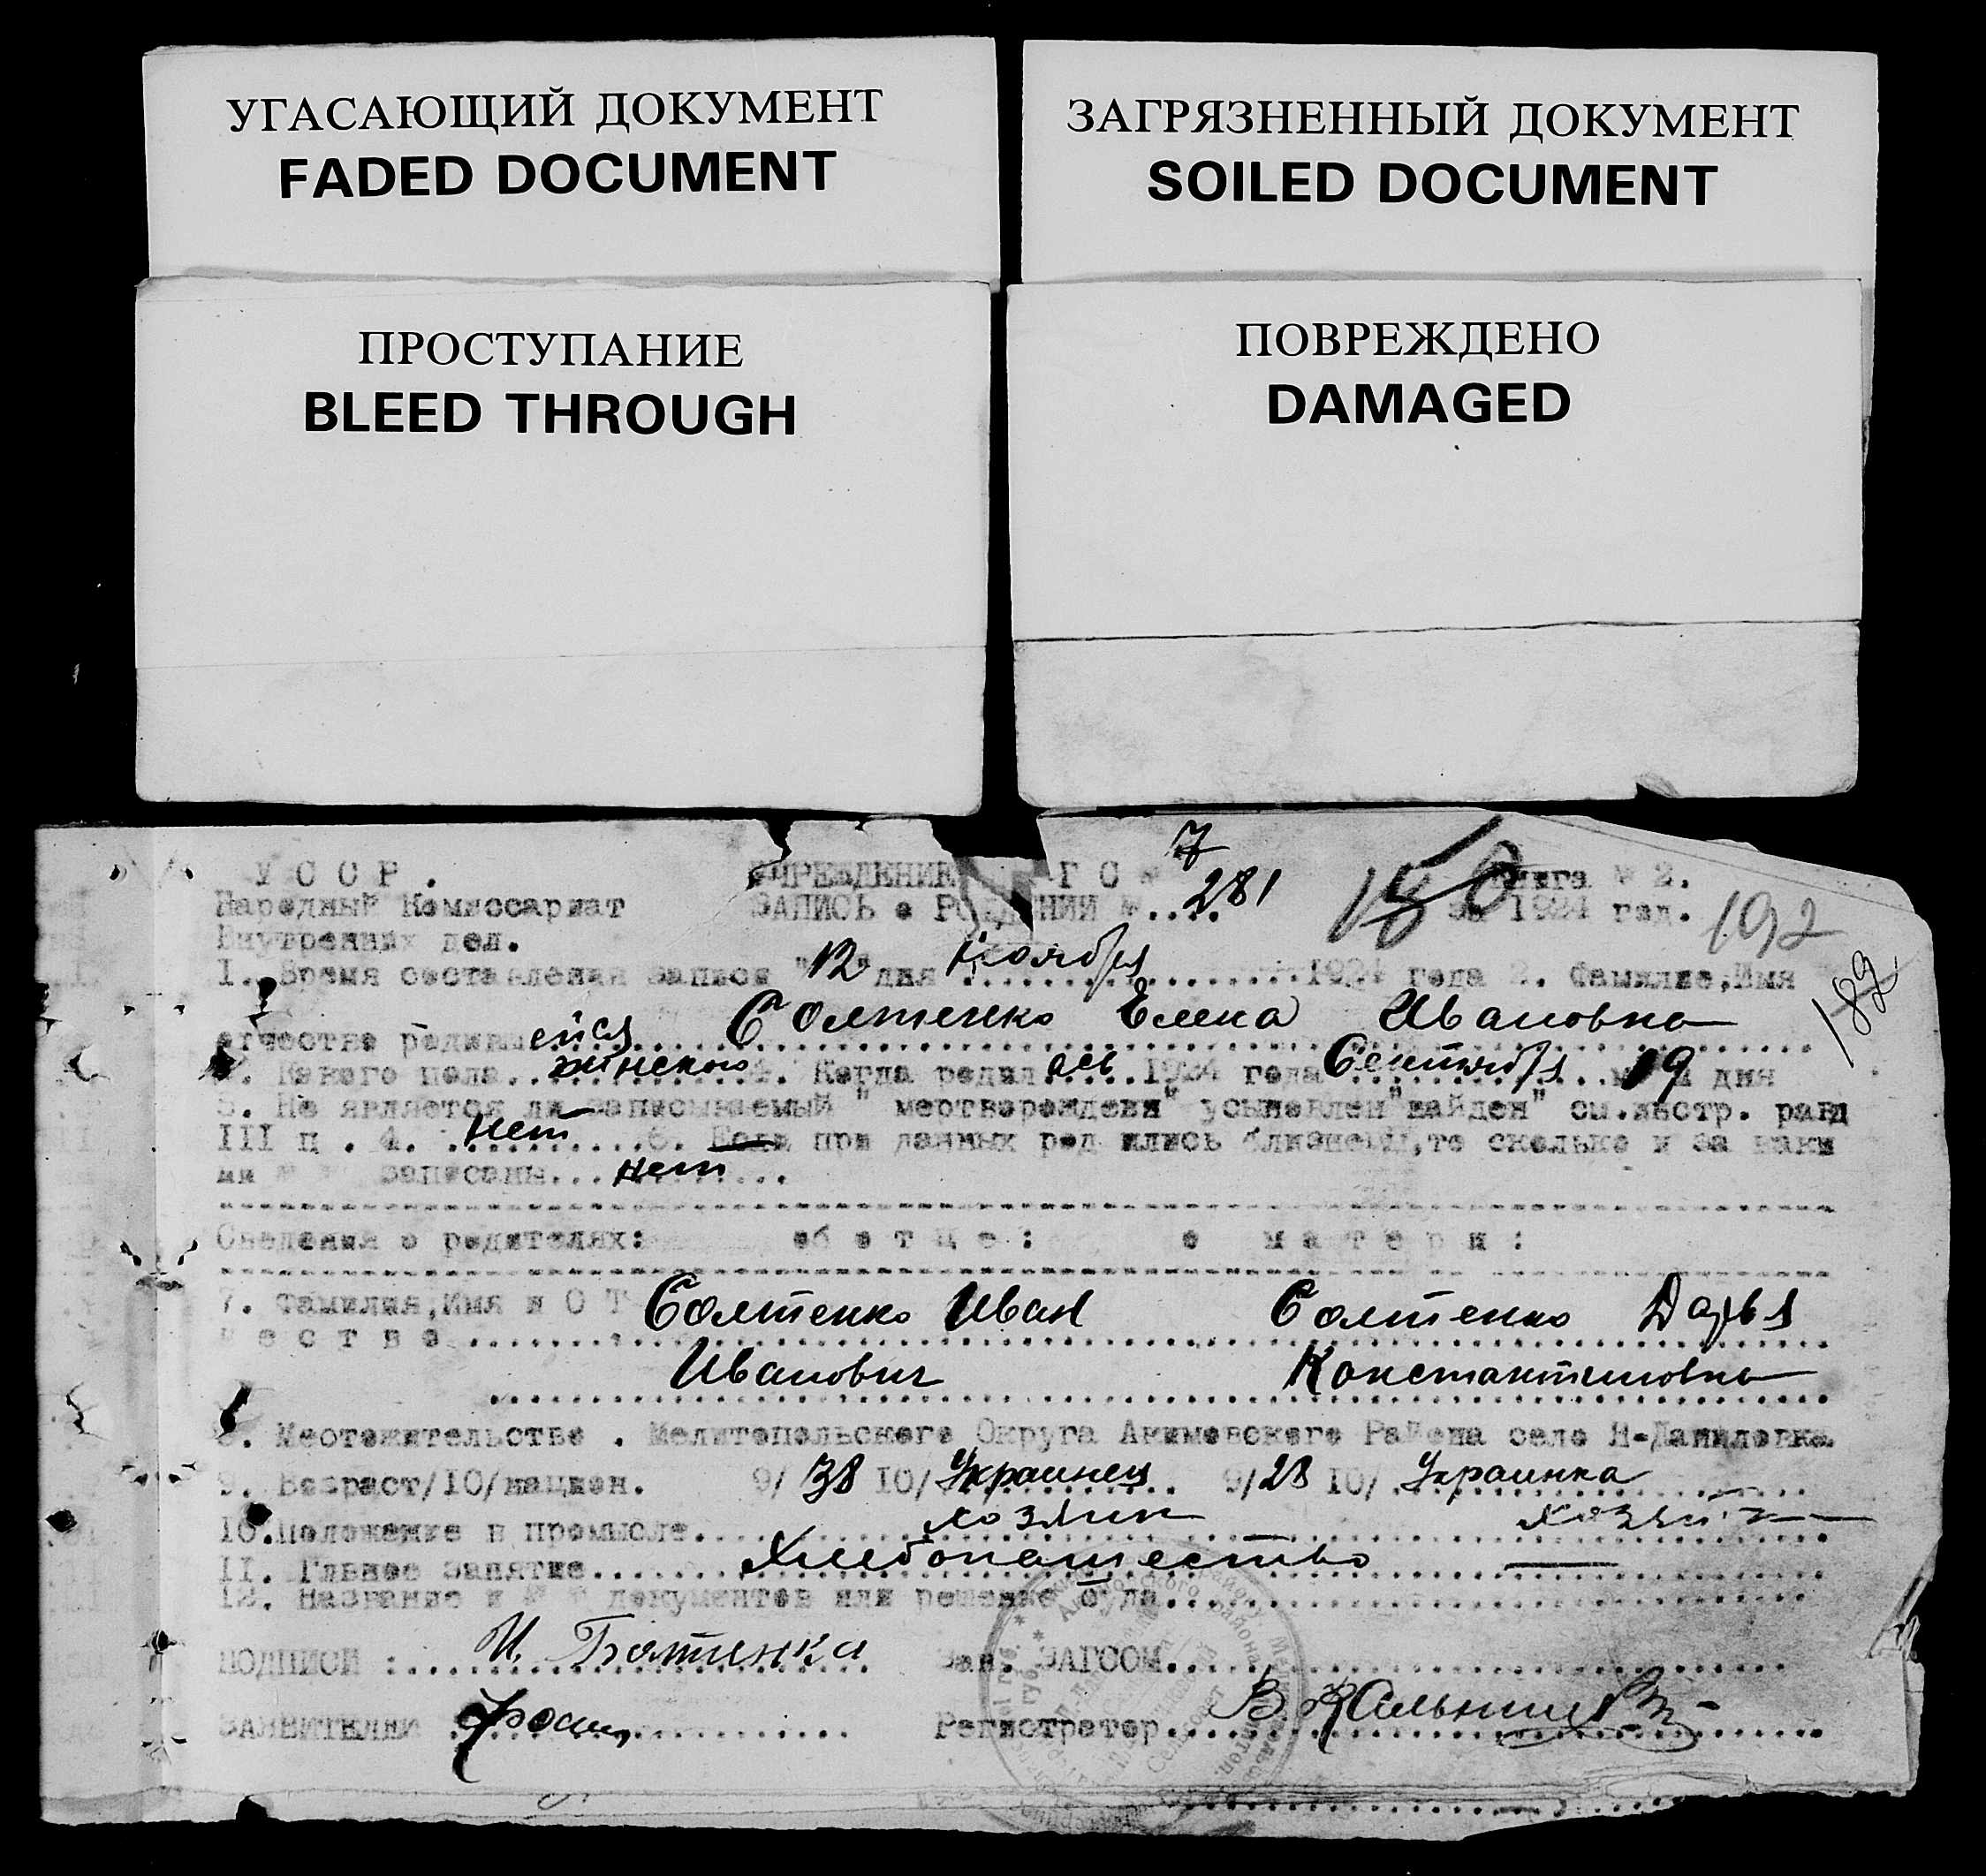 УГАСАЮЩИЙ ДОКУМЕНТ
FADED DOCUMENT
ЗАГРЯЗНЕННЫЙ ДОКУМЕНТ
SOILED DOCUMENT
ПРОСТУПАНИЕ
BLEED THROUGH
ПОВРЕЖДЕНО
DAMAGED
У С С Р . УЧРЕЖДЕНИЕ ЗАГС № 7 150 Книга № 2.
Народный Комиссариат ЗАПИСЬ о РОЖДЕНИИ №.... 281 за 1924 год. 192
Внутренних дел.
1. Время составления записи "12" дня Ноября 1924 года 2. Фамилие,Имя
182
отчество родившейся Солтенко Елена Ивановна
3. Какого пола женского 4. Когда родилась 1924 года Сентября м-ца 19 дня
5. Не является ли записываемый " мертворожден" усыновлен"найден" см.инстр. разд
III п . 4. нет 6. Если при данных родились близнецы,то сколько и за каки
ми № № записаны... нет
Сведения о родителях: об о т ц е : о м а т е р и :
7. Фамилия,Имя и О Т Солтенко Иван Солтенко Дарья
ч е с т в о
Иванович Константиновна
8. Местожительство . Мелитопольского Округа Акимовского Района село Н-Даниловка
9. Возраст/10/национ. 9/ 38 10/ Украинец 9/ 28 10/ Украинка
10.Положение в промысле. хозяин
11. Главное занятие Хлебопашество —
12. Название и № № документов или решение суда
ПОДПИСИ : И. Зав. ЗАГСОМ
ЗАЯВИТЕЛЕЙ Регистратор В